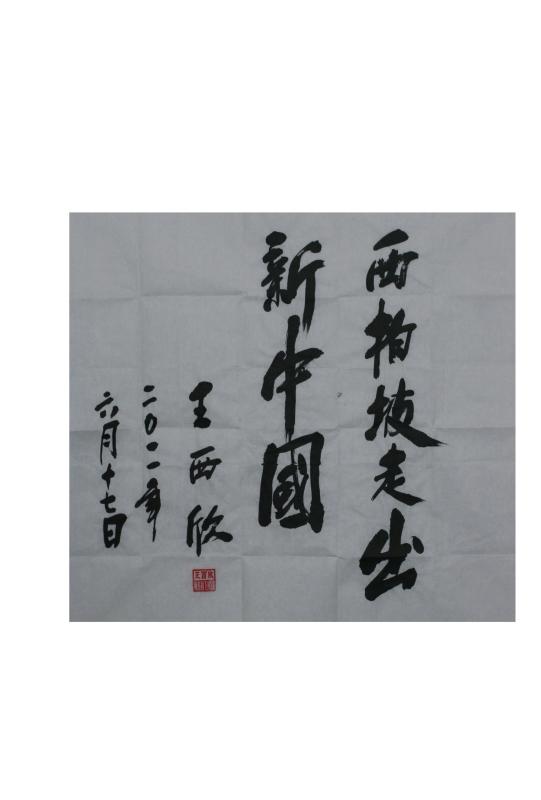 西柏坡走出
新中國
王西欣
二0一一年
六月十七日